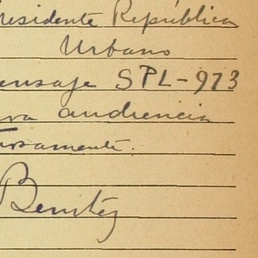 residente República
Urbano
ensaje SPL-973
ra audiencia
osamente.
Benitez